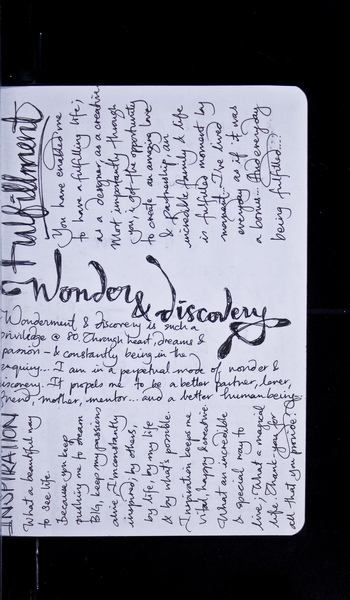 Fulfillment
You have enabled me
to have a fulfilling life;
as a designer, as a creative
Most importantly through
you, I got the opportunity
to create an amazing love
& partnership, an
incredible family & life
is fulfilled moment by
moment. I've lived
everyday as if it was
a bonus... And everyday
being fulfilled...!
Wonder
& discovery
Wonderment & discovery is such a
privilege @ 80. Through heart, dreams &
passion - & constantly being in the
enquiry... I am in a perpetual mode of wonder &
discovery. It propels me to be a better partner, lover,
friend, mother, mentor... and a better human being
INSPIRATION
What a beautiful way
to see life.
Because you keep
pushing me to dream
BIG, keep my passions
alive, I'm constantly
inspired; by others,
by life, by my life
& by what's possible.
Inspiration keeps me
vital, happy & creative
What an incredible
& special way to
live; What a magical
life. Thank you for
all that you provide.